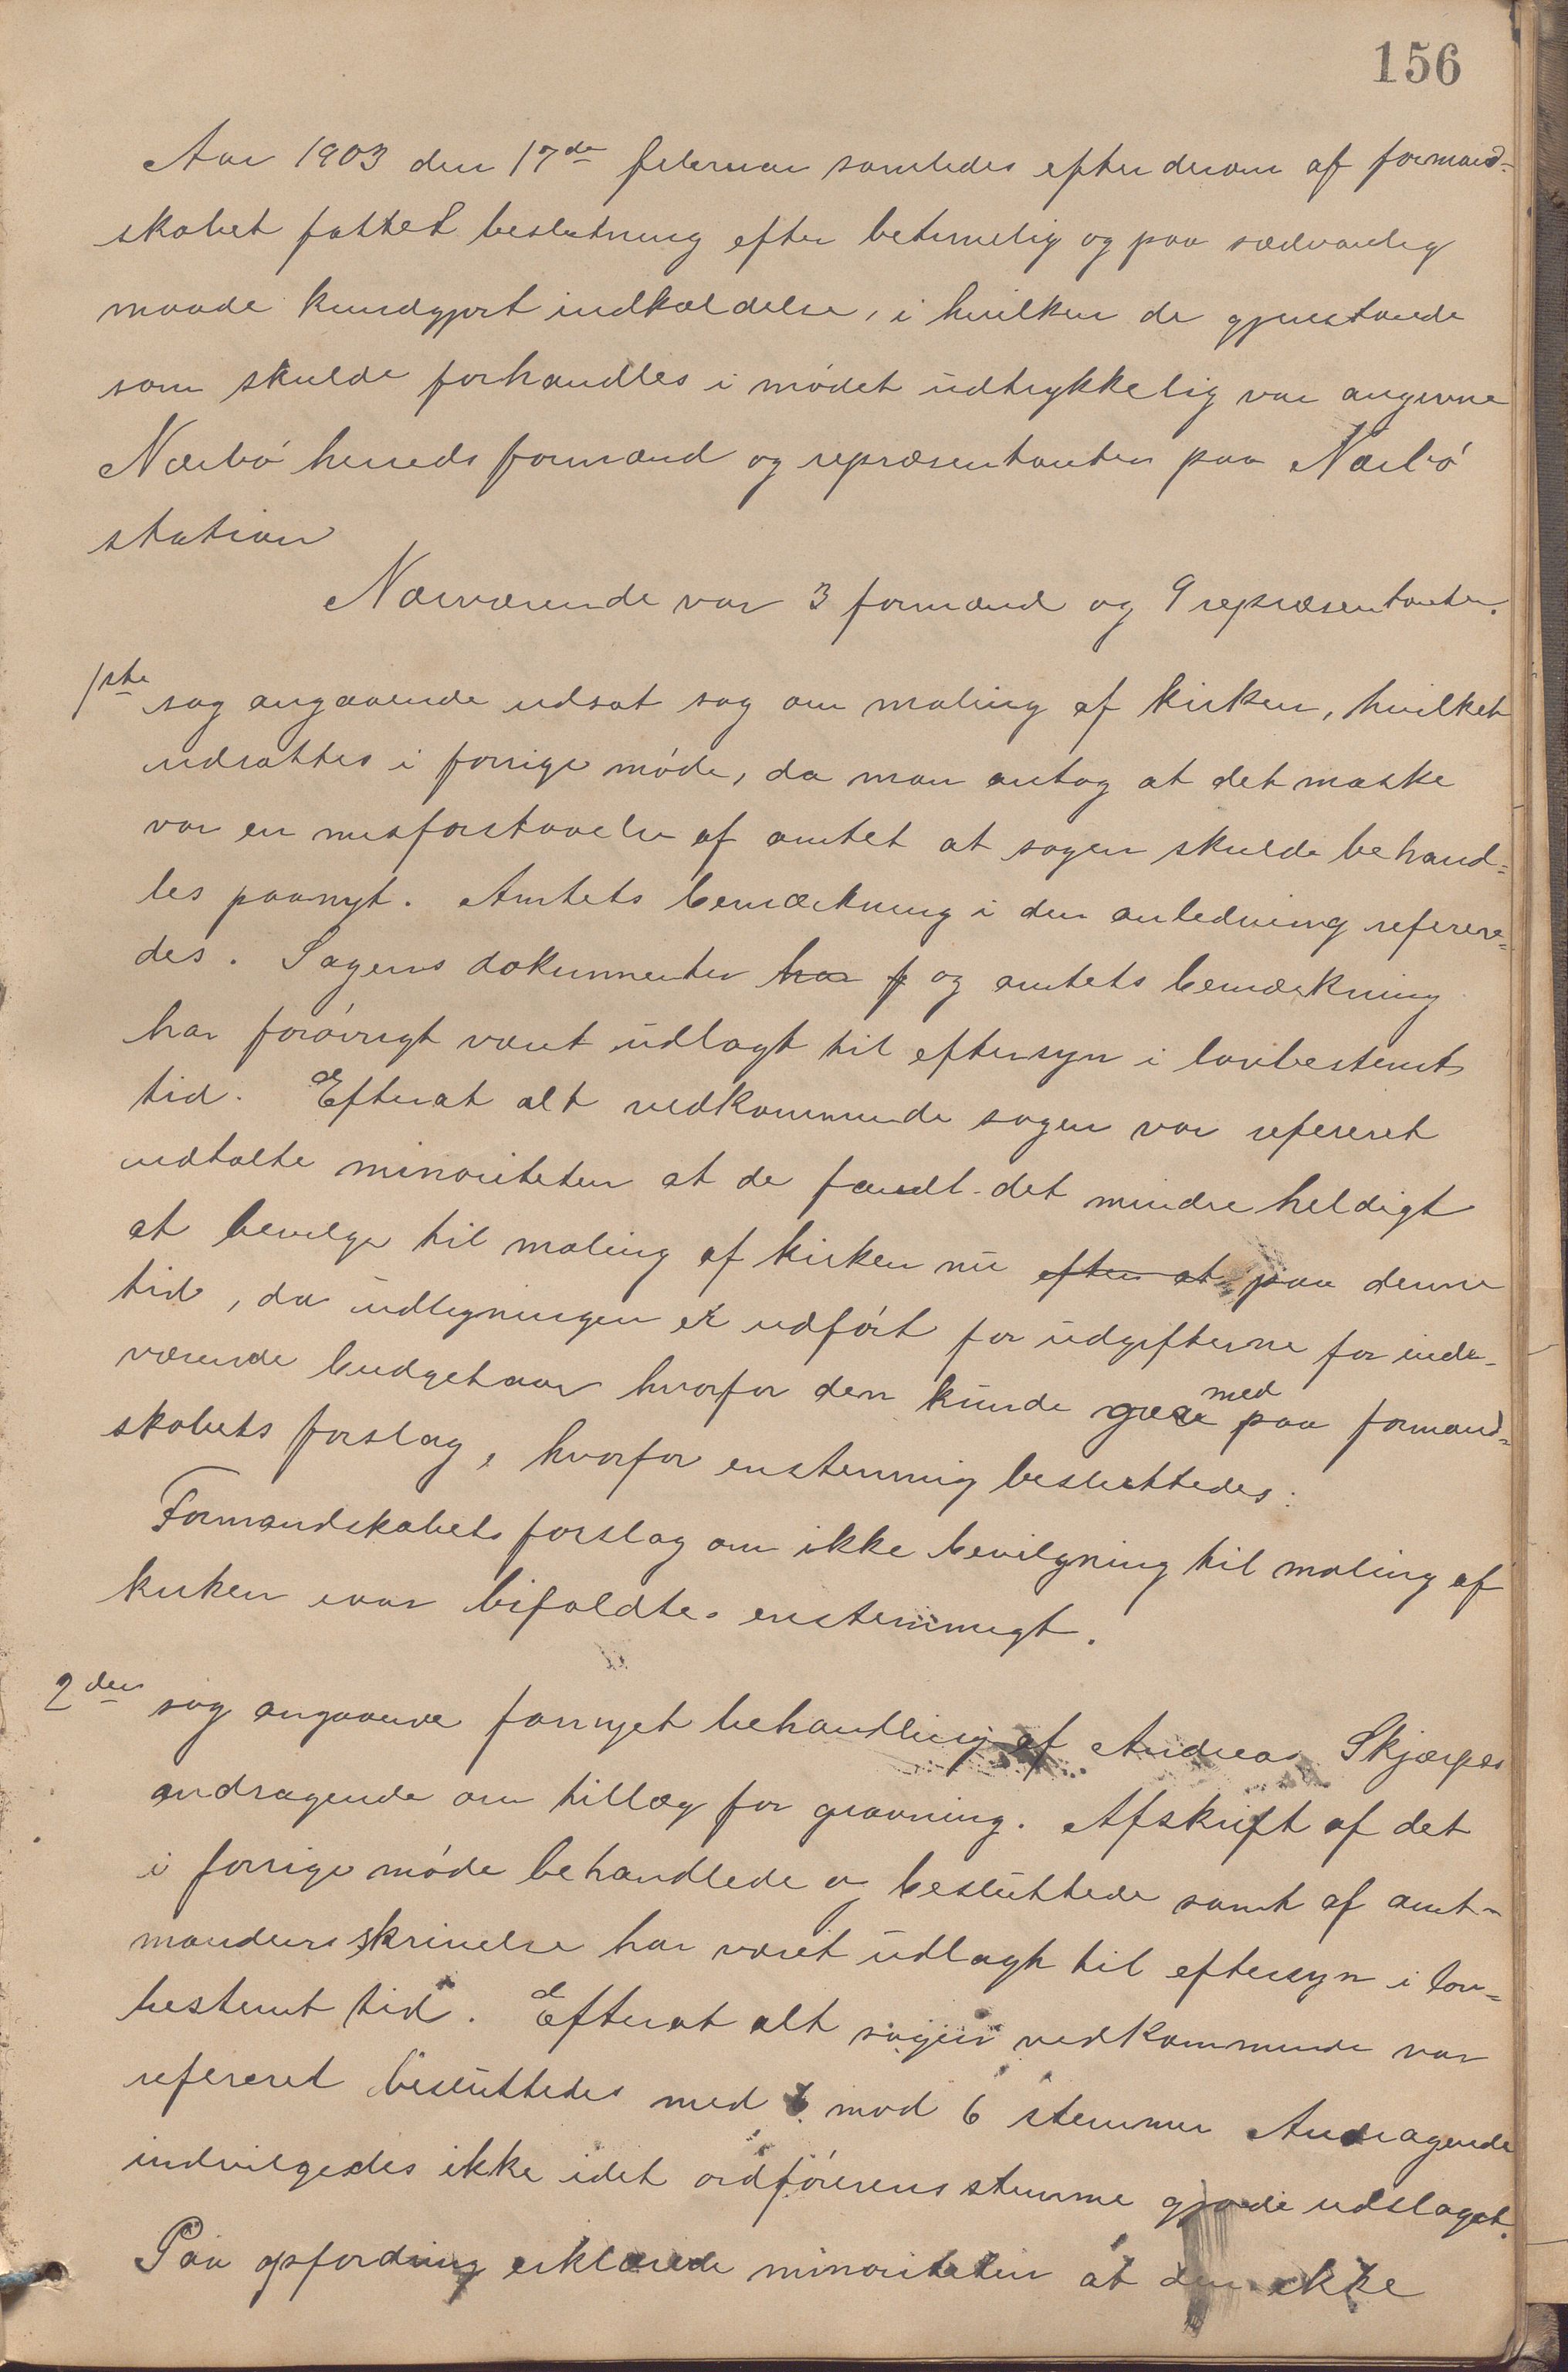 156
Aar 1903 den 17de februar samledes efter derom af formand-
skabet fattet beslutning efter betimelig og paa sædvanlig
maade kundgjort indkaldelse, i hvilken de gjenstande
som skulde forhandles i mødet udtrykkelig var angivne
Nærbø herreds formænd og repræsentanter paa Nærbø
station
Nærværende var 3 formænd og 9 repræsentanter.
1ste sag angaaende udsat sag om maling af kirken, hvilket
udsattes i forrige møde, da man antog at det maske
var en misforstaaelse af amtet at sagen skulde behand-
les paanyt. Amtets bemærkning i den anledning refere-
des. Sagens dokumenter har f og amtets bemærkning
har forøvrigt været udlagt til eftersyn i lovbestemt
tid. Efterat alt vedkommende sagen var refereret
udtalte minoriteten at de fandt det mindre heldigt
at bevilge til maling af kirken nu efter at paa denne
tid, da udligningen er udført for udgifterne for inde-
værende budgetaar hvorfor den kunde gaa med paa formand-
skabets forslag, hvorfor enstemmig besluttedes:
Formandskabets forslag om ikke bevilgning til maling af
kirken iaar bifaldtes enstemmigt.
2den sag angaaende fornyet behandling af Andreas Skjærpes
andragende om tillæg for gravning. Afskrift af det
i forrige møde behandlede og besluttede samt af amt-
mandens skrivelse har været udlagt til eftersyn i lov-
bestemt tid. Efterat alt sagen vedkommende var
refereret besluttedes med 6 mod 6 stemmer Andragende
indvilgedes ikke idet ordførerens stemme gjorde udslaget.
Paa opfordring erklærede minoriteten at den ikke